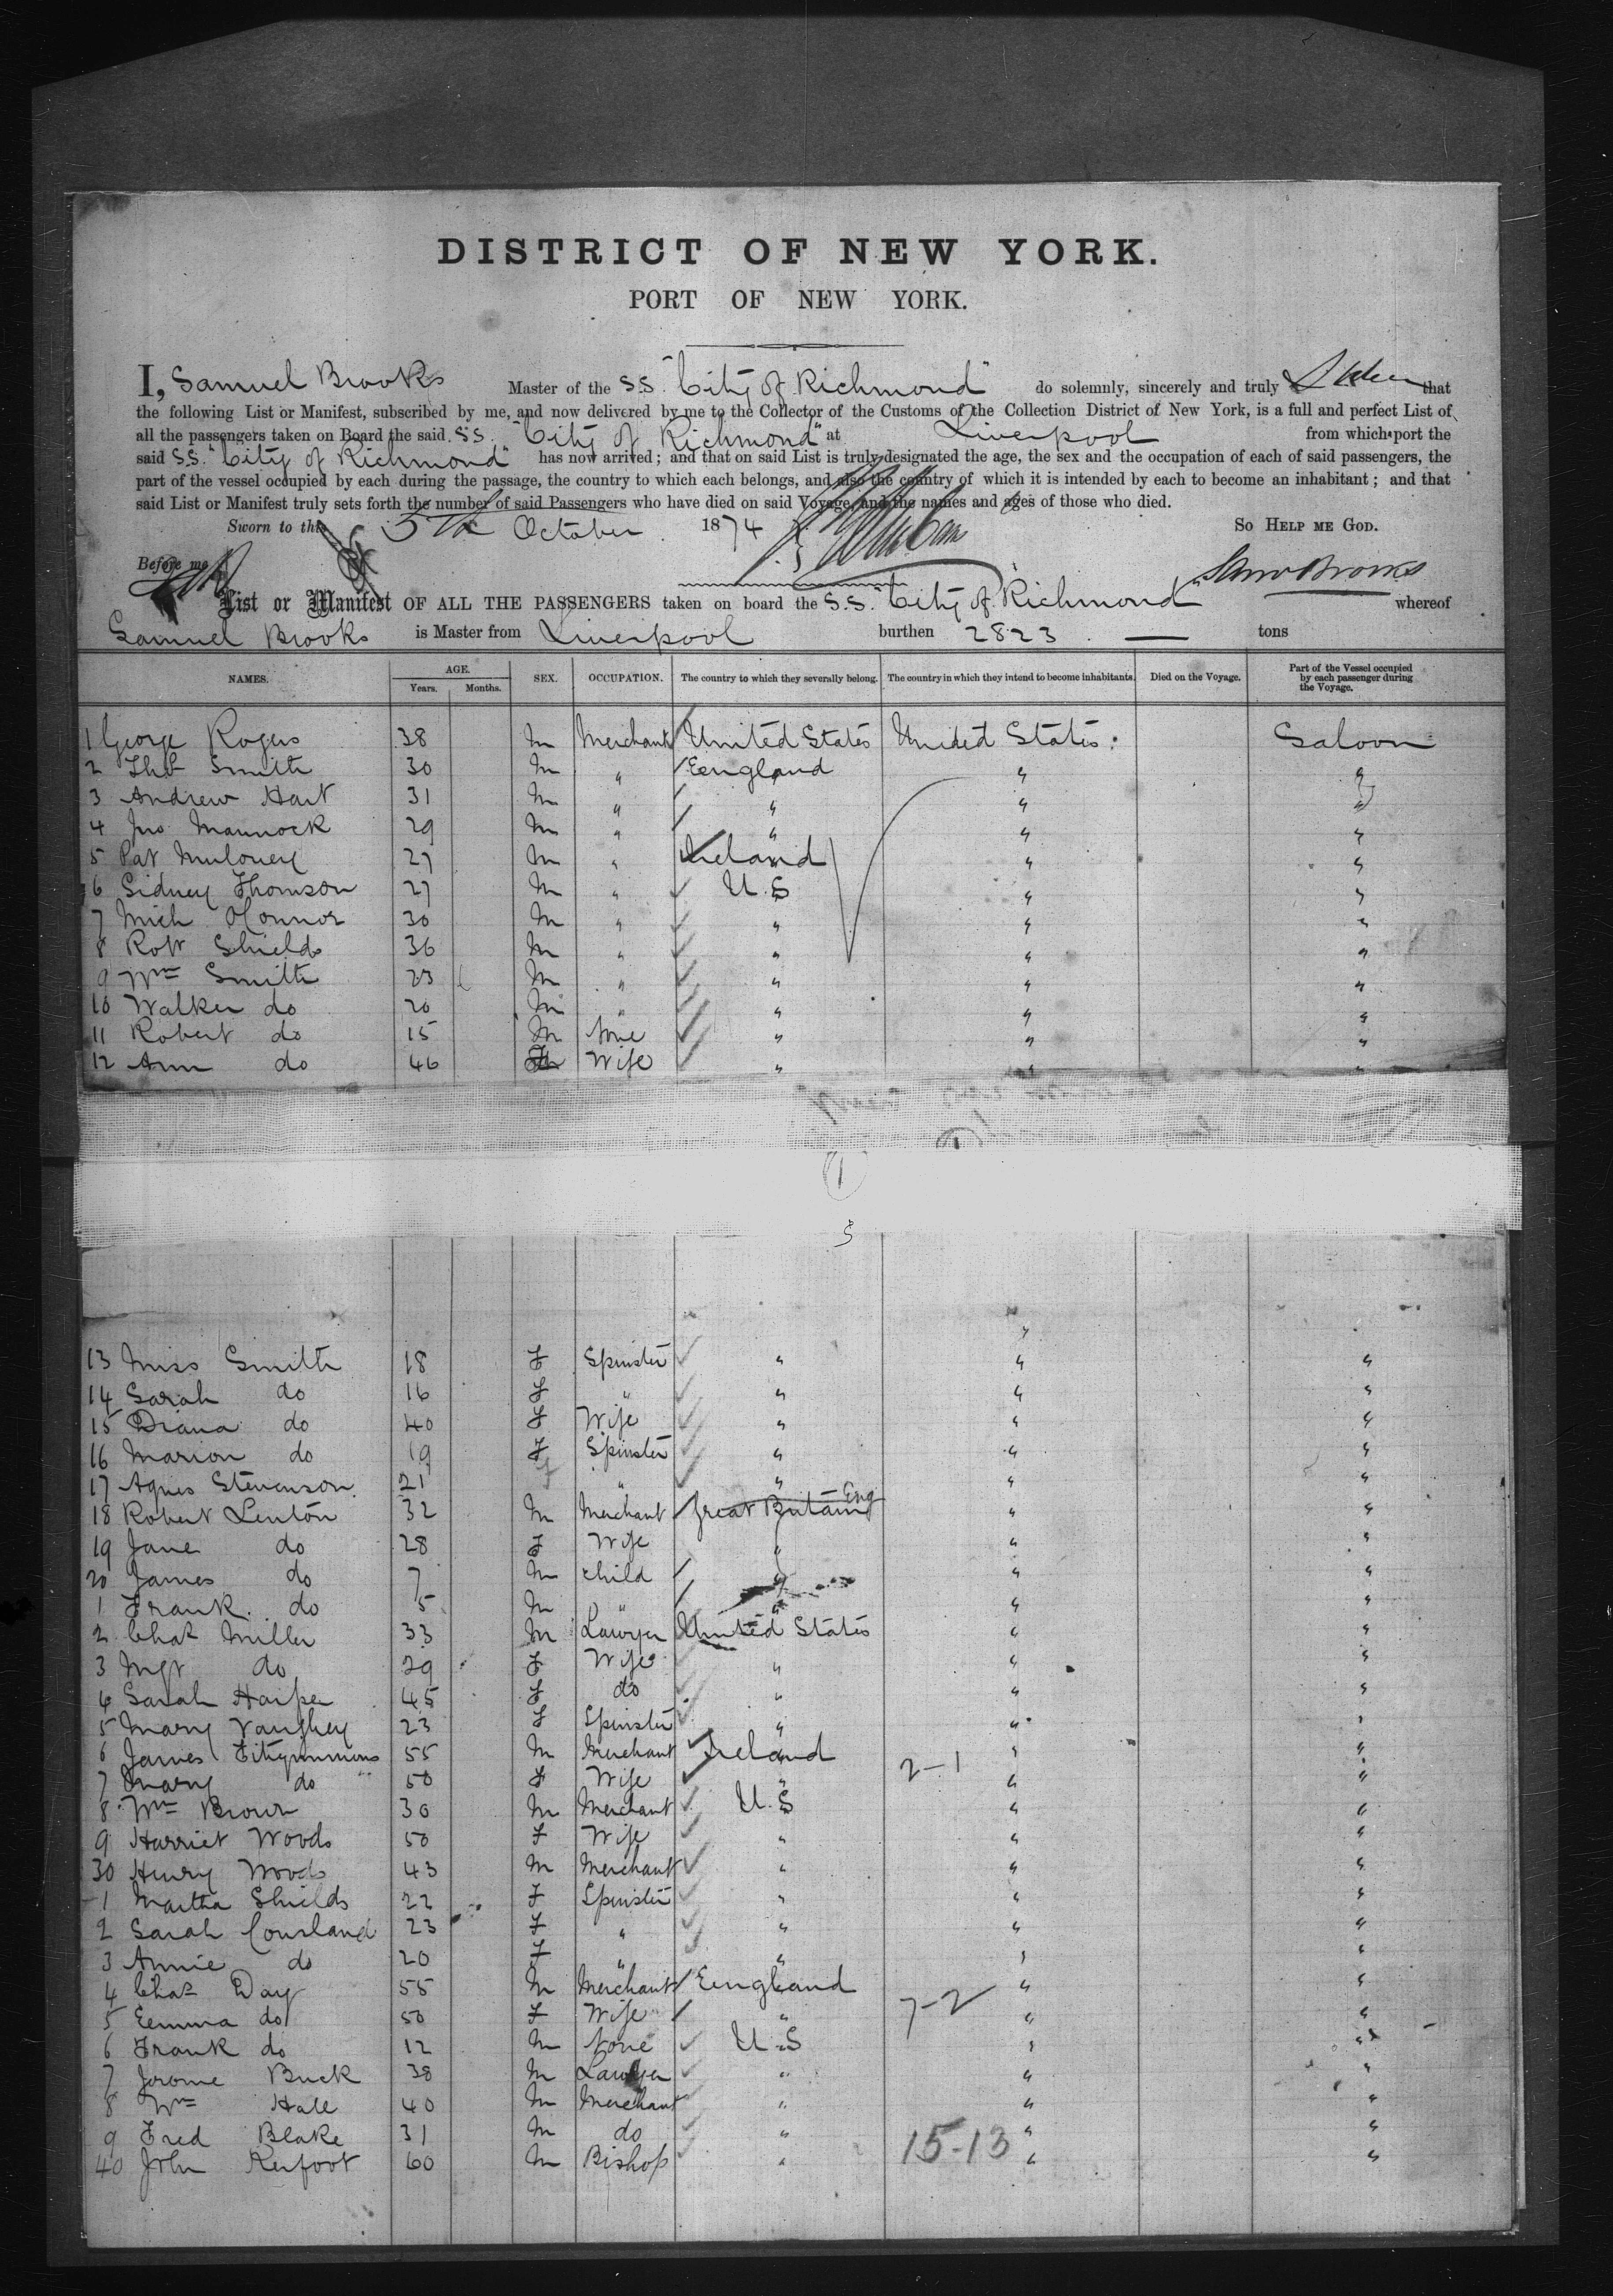 DISTRICT OF NEW YORK.
PORT OF NEW YORK.
I, Samuel Brooks Master of the S.S. "City of Richmond" do solemnly, sincerely and truly that
the following List or Manifest, subscribed by me, and now delivered by me to the Collector of the Customs of the Collection District of New York, is a full and perfect List of
all the passengers taken on Board the said S.S. "City of Richmond" at Liverpool from which port the
said S.S. "City of Richmond" has now arrived; and that on said List is truly designated the age, the sex and the occupation of each of said passengers, the
part of the vessel occupied by each during the passage, the country to which each belongs, and also the country of which it is intended by each to become an inhabitant; and that
said List or Manifest truly sets forth the number of said Passengers who have died on said Voyage, and the names and ages of those who died.
Sworn to this 5th October 1874 So Help me God.
Before me Saml Brooks
List or Manifest OF ALL THE PASSENGERS taken on board the S.S. "City of Richmond" whereof
Samuel Brooks is Master from Liverpool burthen 2823 tons
NAMES. AGE. Years. Months. SEX. OCCUPATION. The country to which they severally belong. The country in which they intend to become inhabitants. Died on the Voyage. Part of the Vessel occupied by each passenger during the Voyage.
1 George Rogers 38 M Merchant United States United States. Saloon
2 Smith 30 M " Eengland " "
3 Andrew Hart 31 M " " " "
4 Jno Mannock 29 M " " " "
5 Pat Muloney 27 M " Ireland " "
6 Sidney Thomson 27 M " U.S " "
7 Mich O'Connor 30 M " " " "
8 Robt Shields 36 M " " " "
9 Wm Smith 23 M " " " "
10 Walker do 20 M " " " "
11 Robert do 15 M None " " "
12 Ann do 46 F Wife " " "
1
5
13 Miss Smith 18 F Spinster " " "
14 Sarah do 16 F " " " "
15 Diana do 40 F Wife " " "
16 Marion do 19 F Spinster " " "
17 Agnes Stevenson 21 F " " " "
18 Robert Lenton 32 M Merchant Great Britain Eng " "
19 Jane do 28 F Wife " " "
20 James do 7 M child " " "
1 Frank do 5 M " " " "
2 Chas Miller 33 M Lawyer United States " "
3 Mgt do 29 F Wife " " "
4 Sarah Harper 45 F do " " "
5 Mary Vaughey 23 F Spinster " " "
6 James Fitzymmons 55 M Merchant Ireland 2-1 " "
7 Mary do 50 F Wife " " "
8 Wm Brown 30 M Merchant U.S " "
9 Harriet Woods 50 F Wife " " "
30 Henry Woods 43 M Merchant " " "
1 Martha Shields 22 F Spinster " " "
2 Sarah Coursland 23 F " " " "
3 Annie do 20 F " " " "
4 Chas Day 55 M Merchant Eengland 7-2 " "
5 Eemma do 50 F Wife " " "
6 Frank do 12 M None U.S " "
7 Jerome Buck 38 M Lawyer " " "
8 Wm Hall 40 M Merchant " " "
9 Fred Blake 31 M do " " "
40 John Kerfoot 60 M Bishop " 15-13 " "